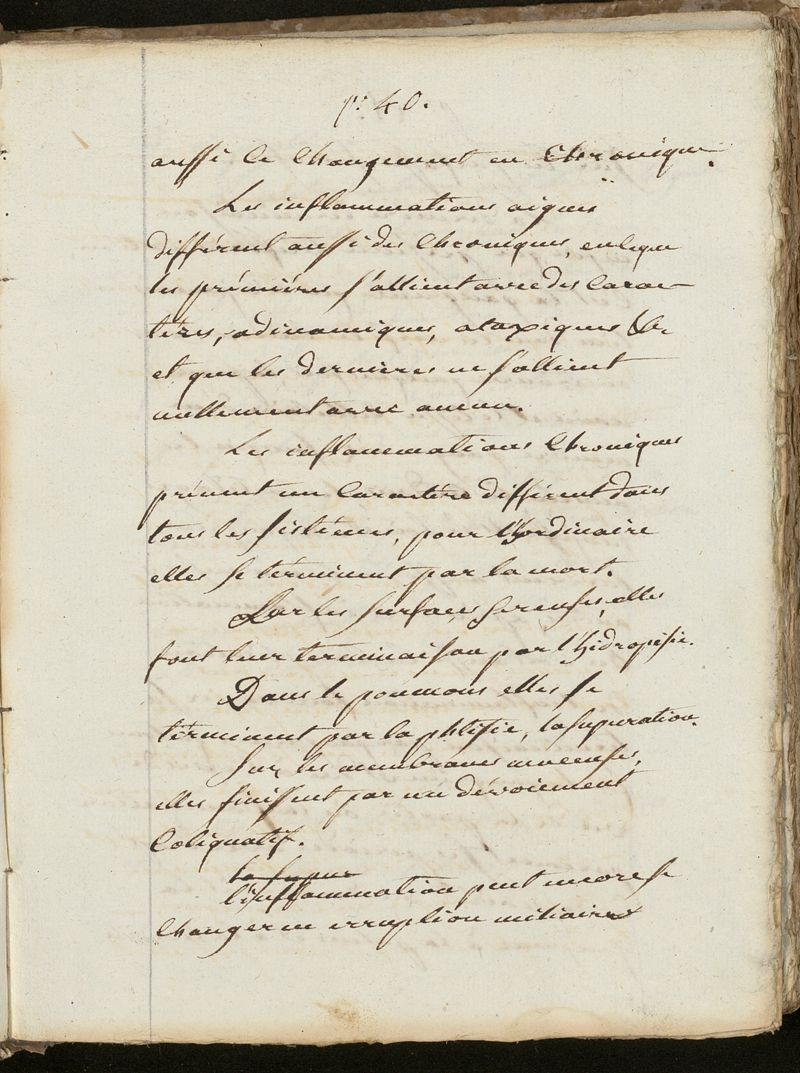 p. 40.
aussi le changement en Chronique.
Les inflammations aigues
différent aussi des Chroniques, en ce que
les prémiéres s'allient avec des Carac-
téres, adinamiques, ataxiques &c
et que les dernieres ne s'allient
nullement avec aucun.
Les inflammations Chroniques
prénent un Caractére différent dans
tous les sistémes, pour l'hordinaire
elles se términent par la mort.
Sur les surfaces sereuses, elles
font leur terminaison par l'hidropisie.
Dans le poumons elles se
términent par la phtisie, la supuration.
Sur les membranes muceuses,
elles finissent par un dévoiement
Coliquatif.
la supur
l'inflammation peut encore se
changer en erruption miliaire